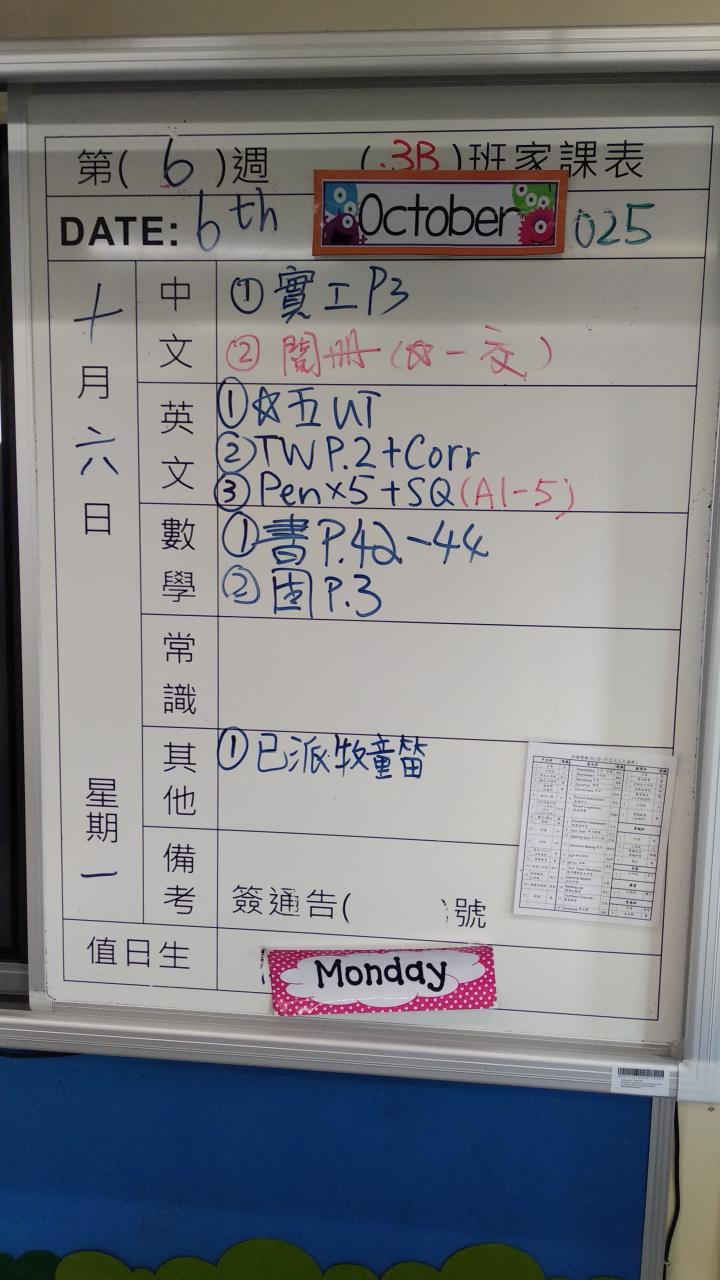 第( 6 )週 ( 3B )班家課表
DATE: 6th October 025
十月六日 星期一
中文 ① 實工P3
② 閱冊(☆一交)
英文 ①☆五UT
②TW P.2+Corr
③Pen×5+SQ(A1-5)
數學 ①書P.42-44
②固P.3
常識
其他 ①已派牧童笛
備考 簽通告( )號
值日生 Monday